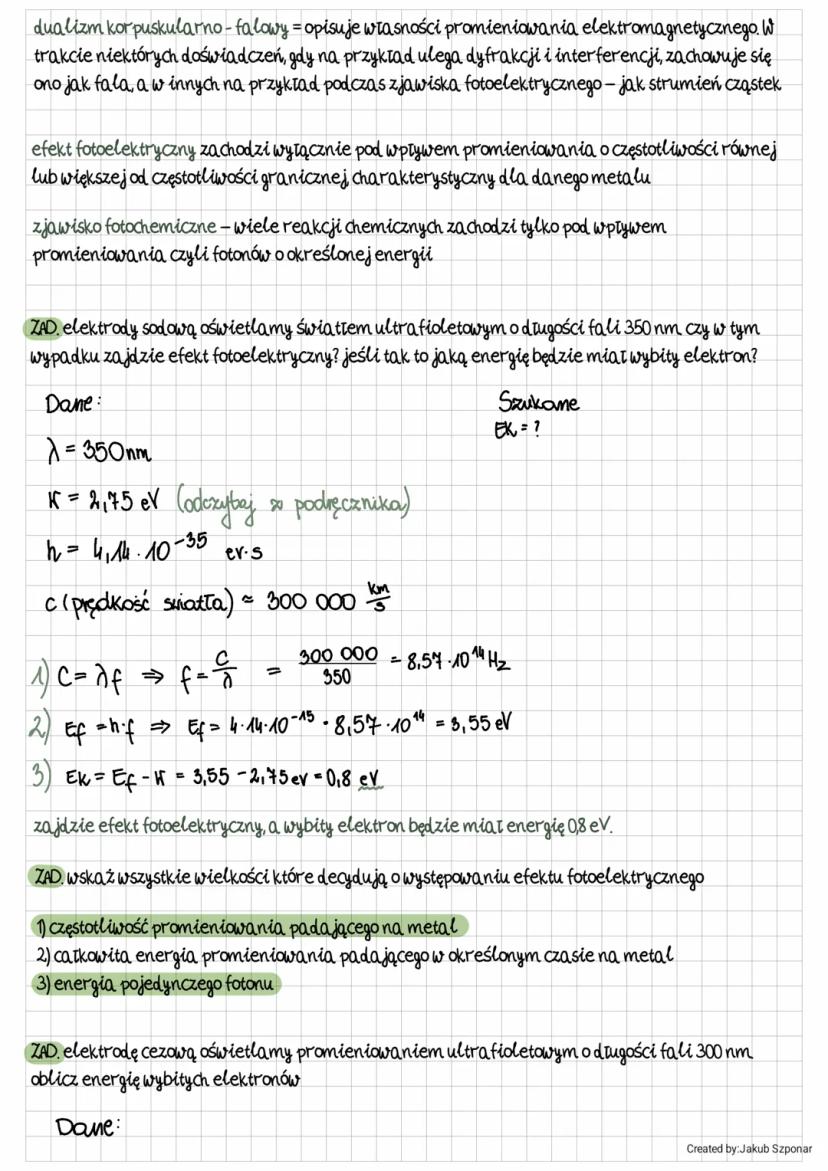 dualizm korpuskularno - falowy = opisuje własności promieniowania elektromagnetycznego. W
trakcie niektórych doświadczeń, gdy na przykład ulega dyfrakcji i interferencji, zachowuje się
ono jak fala, a w innych na przykład podczas zjawiska fotoelektrycznego – jak strumień cząstek
efekt fotoelektryczny zachodzi wyłącznie pod wpływem promieniowania o częstotliwości równej
lub większej od częstotliwości granicznej, charakterystyczny dla danego metalu
zjawisko fotochemiczne – wiele reakcji chemicznych zachodzi tylko pod wpływem
promieniowania czyli fotonów o określonej energii
ZAD. elektrody sodową oświetlamy światłem ultrafioletowym o długości fali 350 nm. czy w tym
wypadku zajdzie efekt fotoelektryczny? jeśli tak to jaką energię będzie miał wybity elektron?
Dane:
Szukane
EK = ?
λ = 350nm
K = 2,75 eV (odczytaj z podręcznika)
h = 4,14 · 10^-35 ev·s
c (prędkość światła) ≈ 300 000 km/s
1) C = λf ⇒ f = c/λ = 300 000/350 = 8,57 · 10^14 Hz
2) Ef = h·f ⇒ Ef = 4·14·10^-15 · 8,57 · 10^14 = 3,55 eV
3) Ek = Ef - K = 3,55 - 2,75 ev = 0,8 eV
zajdzie efekt fotoelektryczny, a wybity elektron będzie miał energię 0,8 eV.
ZAD. wskaż wszystkie wielkości które decydują o występowaniu efektu fotoelektrycznego
1) częstotliwość promieniowania padającego na metal
2) całkowita energia promieniowania padającego w określonym czasie na metal
3) energia pojedynczego fotonu
ZAD. elektrodę cezową oświetlamy promieniowaniem ultrafioletowym o długości fali 300 nm.
oblicz energię wybitych elektronów
Dane:
Created by:Jakub Szponar